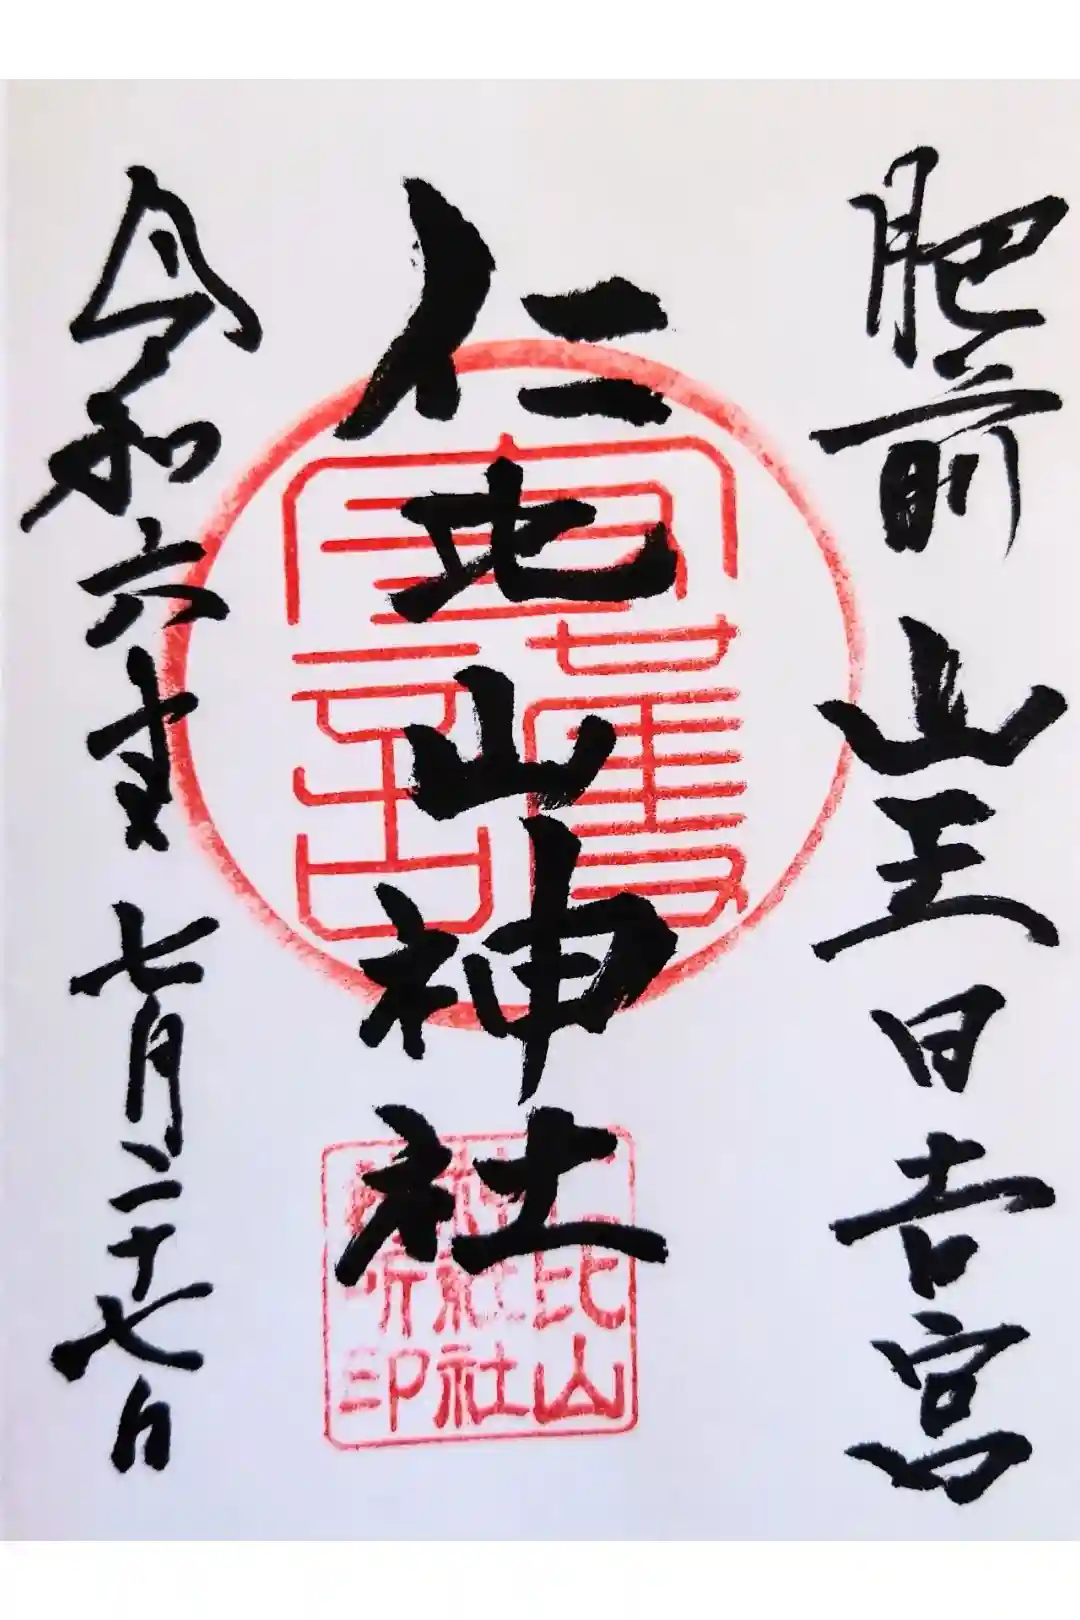 肥前 山王日吉宮
仁比山神社
令和六年七月二十七日
仁比山
神社社
務所印